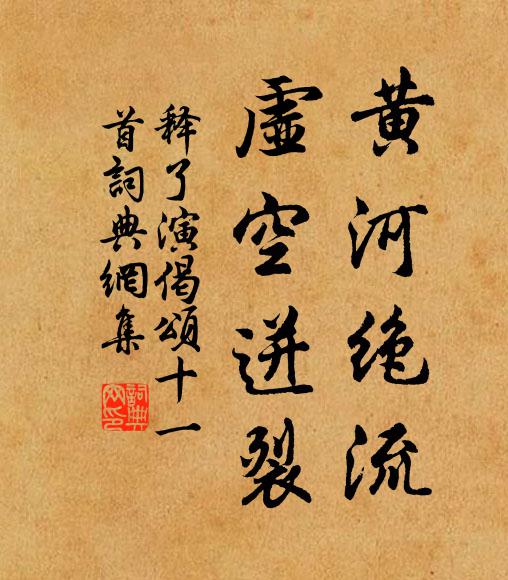 黄河绝流
虚空迸裂
释了演偈颂十一
首词典網集
詞典
网印